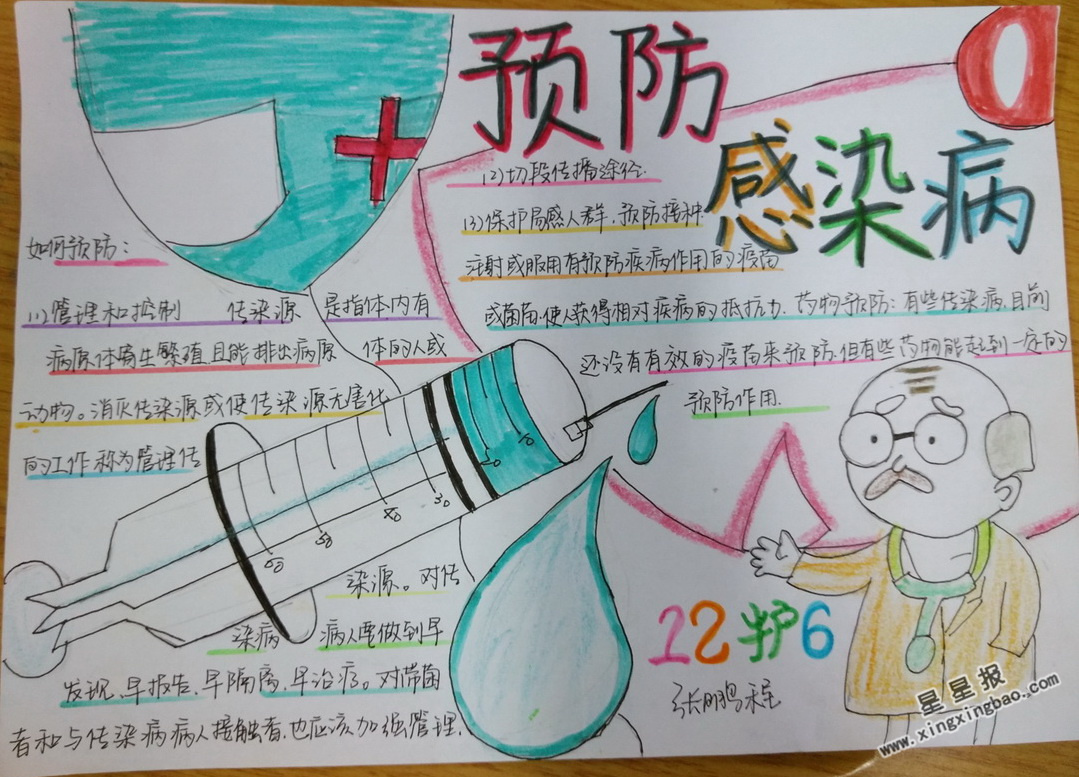 预防
感染病
如何预防：
(1)管理和控制 传染源 是指体内有
病原体寄生繁殖且能排出病原 体的人或
动物。消灭传染源或使传染源无害化
的工作称为管理传
染源。对传
染病 病人要做到早
发现、早报告、早隔离、早治疗。对带菌
者和与传染病病人接触者，也应该加强管理.
(2)切段传播途径.
(3)保护易感人群，预防接种
注射或服用有预防疾病作用的疫苗
或菌苗，使人获得相对疾病的抵抗力. 药物预防：有些传染病，目前
还没有有效的疫苗来预防，但有些药物能起到一定的
预防作用.
20
30
40
50
60
12护6
星星报
www.xingxingbao.com